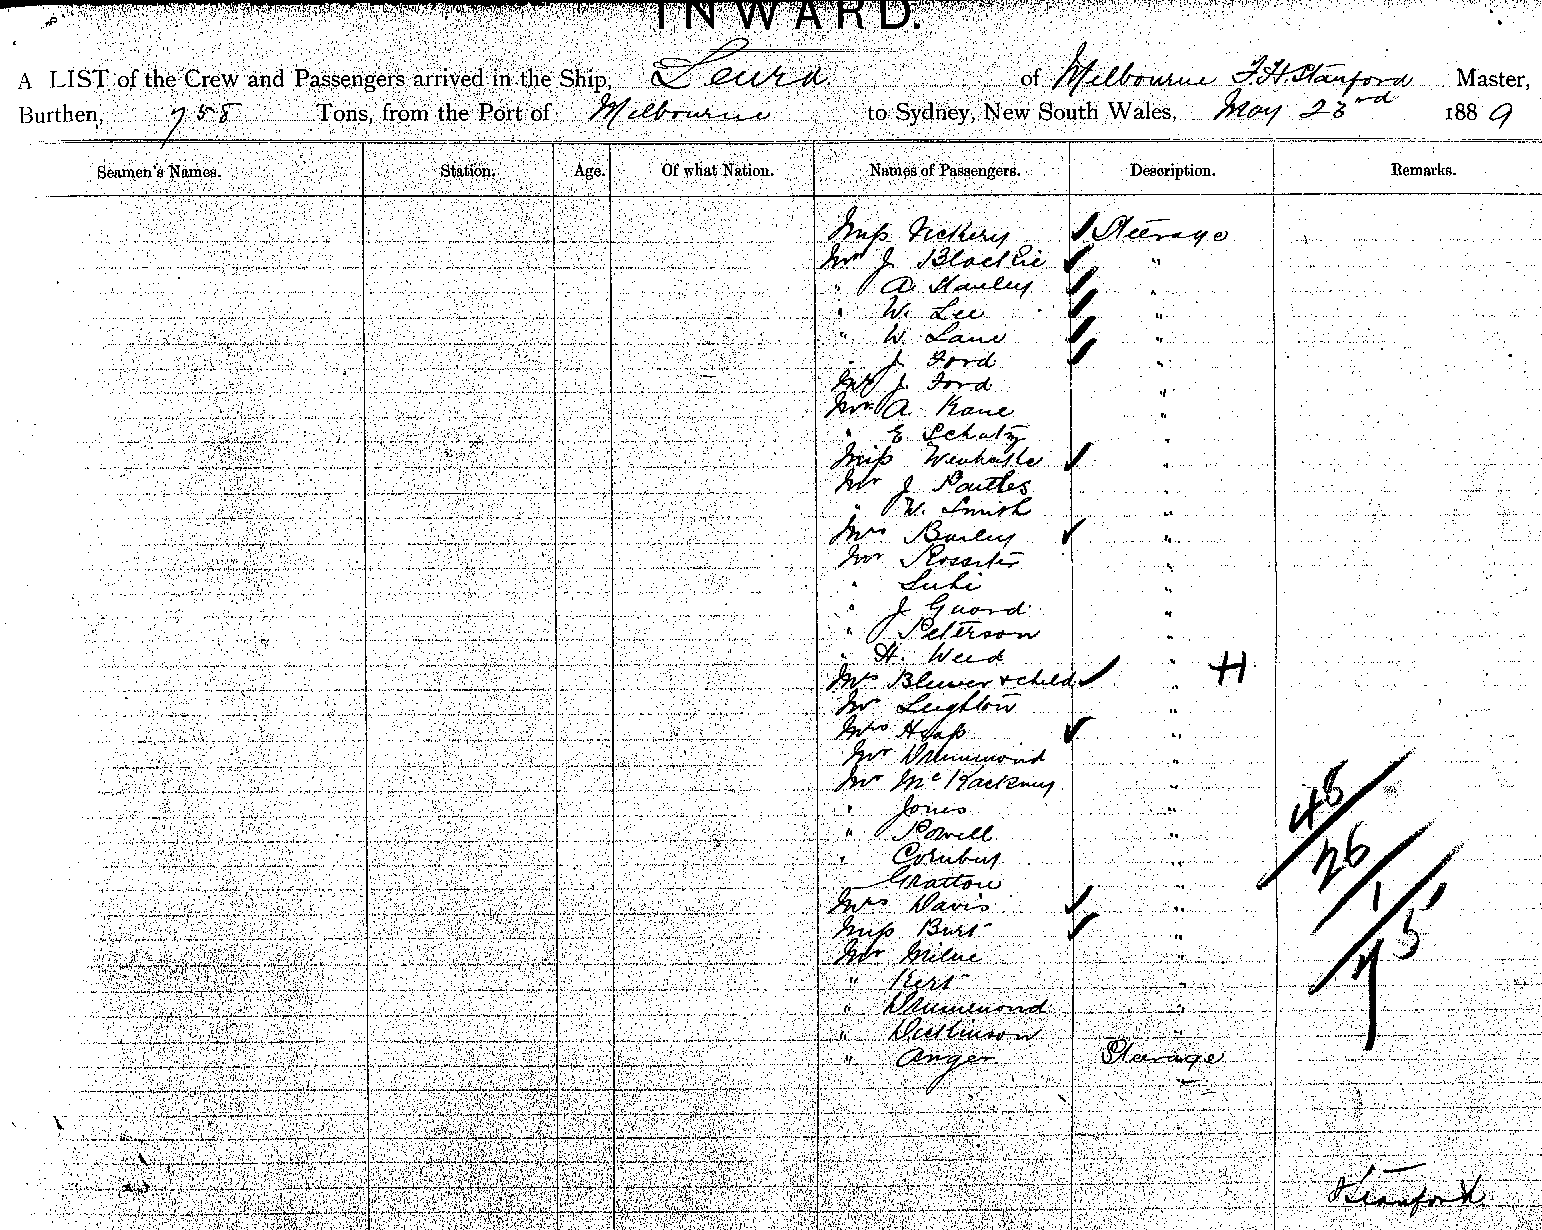 INWARD.
A LIST of the Crew and Passengers arrived in the Ship, Leura of Melbourne F H Stanford Master,
Burthen, 758 Tons, from the Port of Melbourne to Sydney, New South Wales, May 23rd 1889
Seamen's Names. Station. Age. Of what Nation. Names of Passengers. Description. Remarks.
Miss Vickery Steerage
Mr J Blackie "
" A. Stanley "
" W. Lee "
" W Lane "
" J Ford "
Mrs J Ford "
Mr A Kane "
" E Schutz "
Miss "
Mr J "
" W. Smith "
Mrs Bailey "
Mr Rossiter "
" "
" J Guard "
" Peterson "
" H. Weed " H
Mrs Blewer & child "
Mr Leighton "
Mrs Heap "
Mr Drummond "
Mr Mc "
" Jones "
" Powell "
" Cornby "
Gratton "
Mrs Davis "
Miss Burt "
Mr Milne "
" Kert "
" Drummond "
" Dickinson "
" Anger Steerage
48
26
1
Stanford